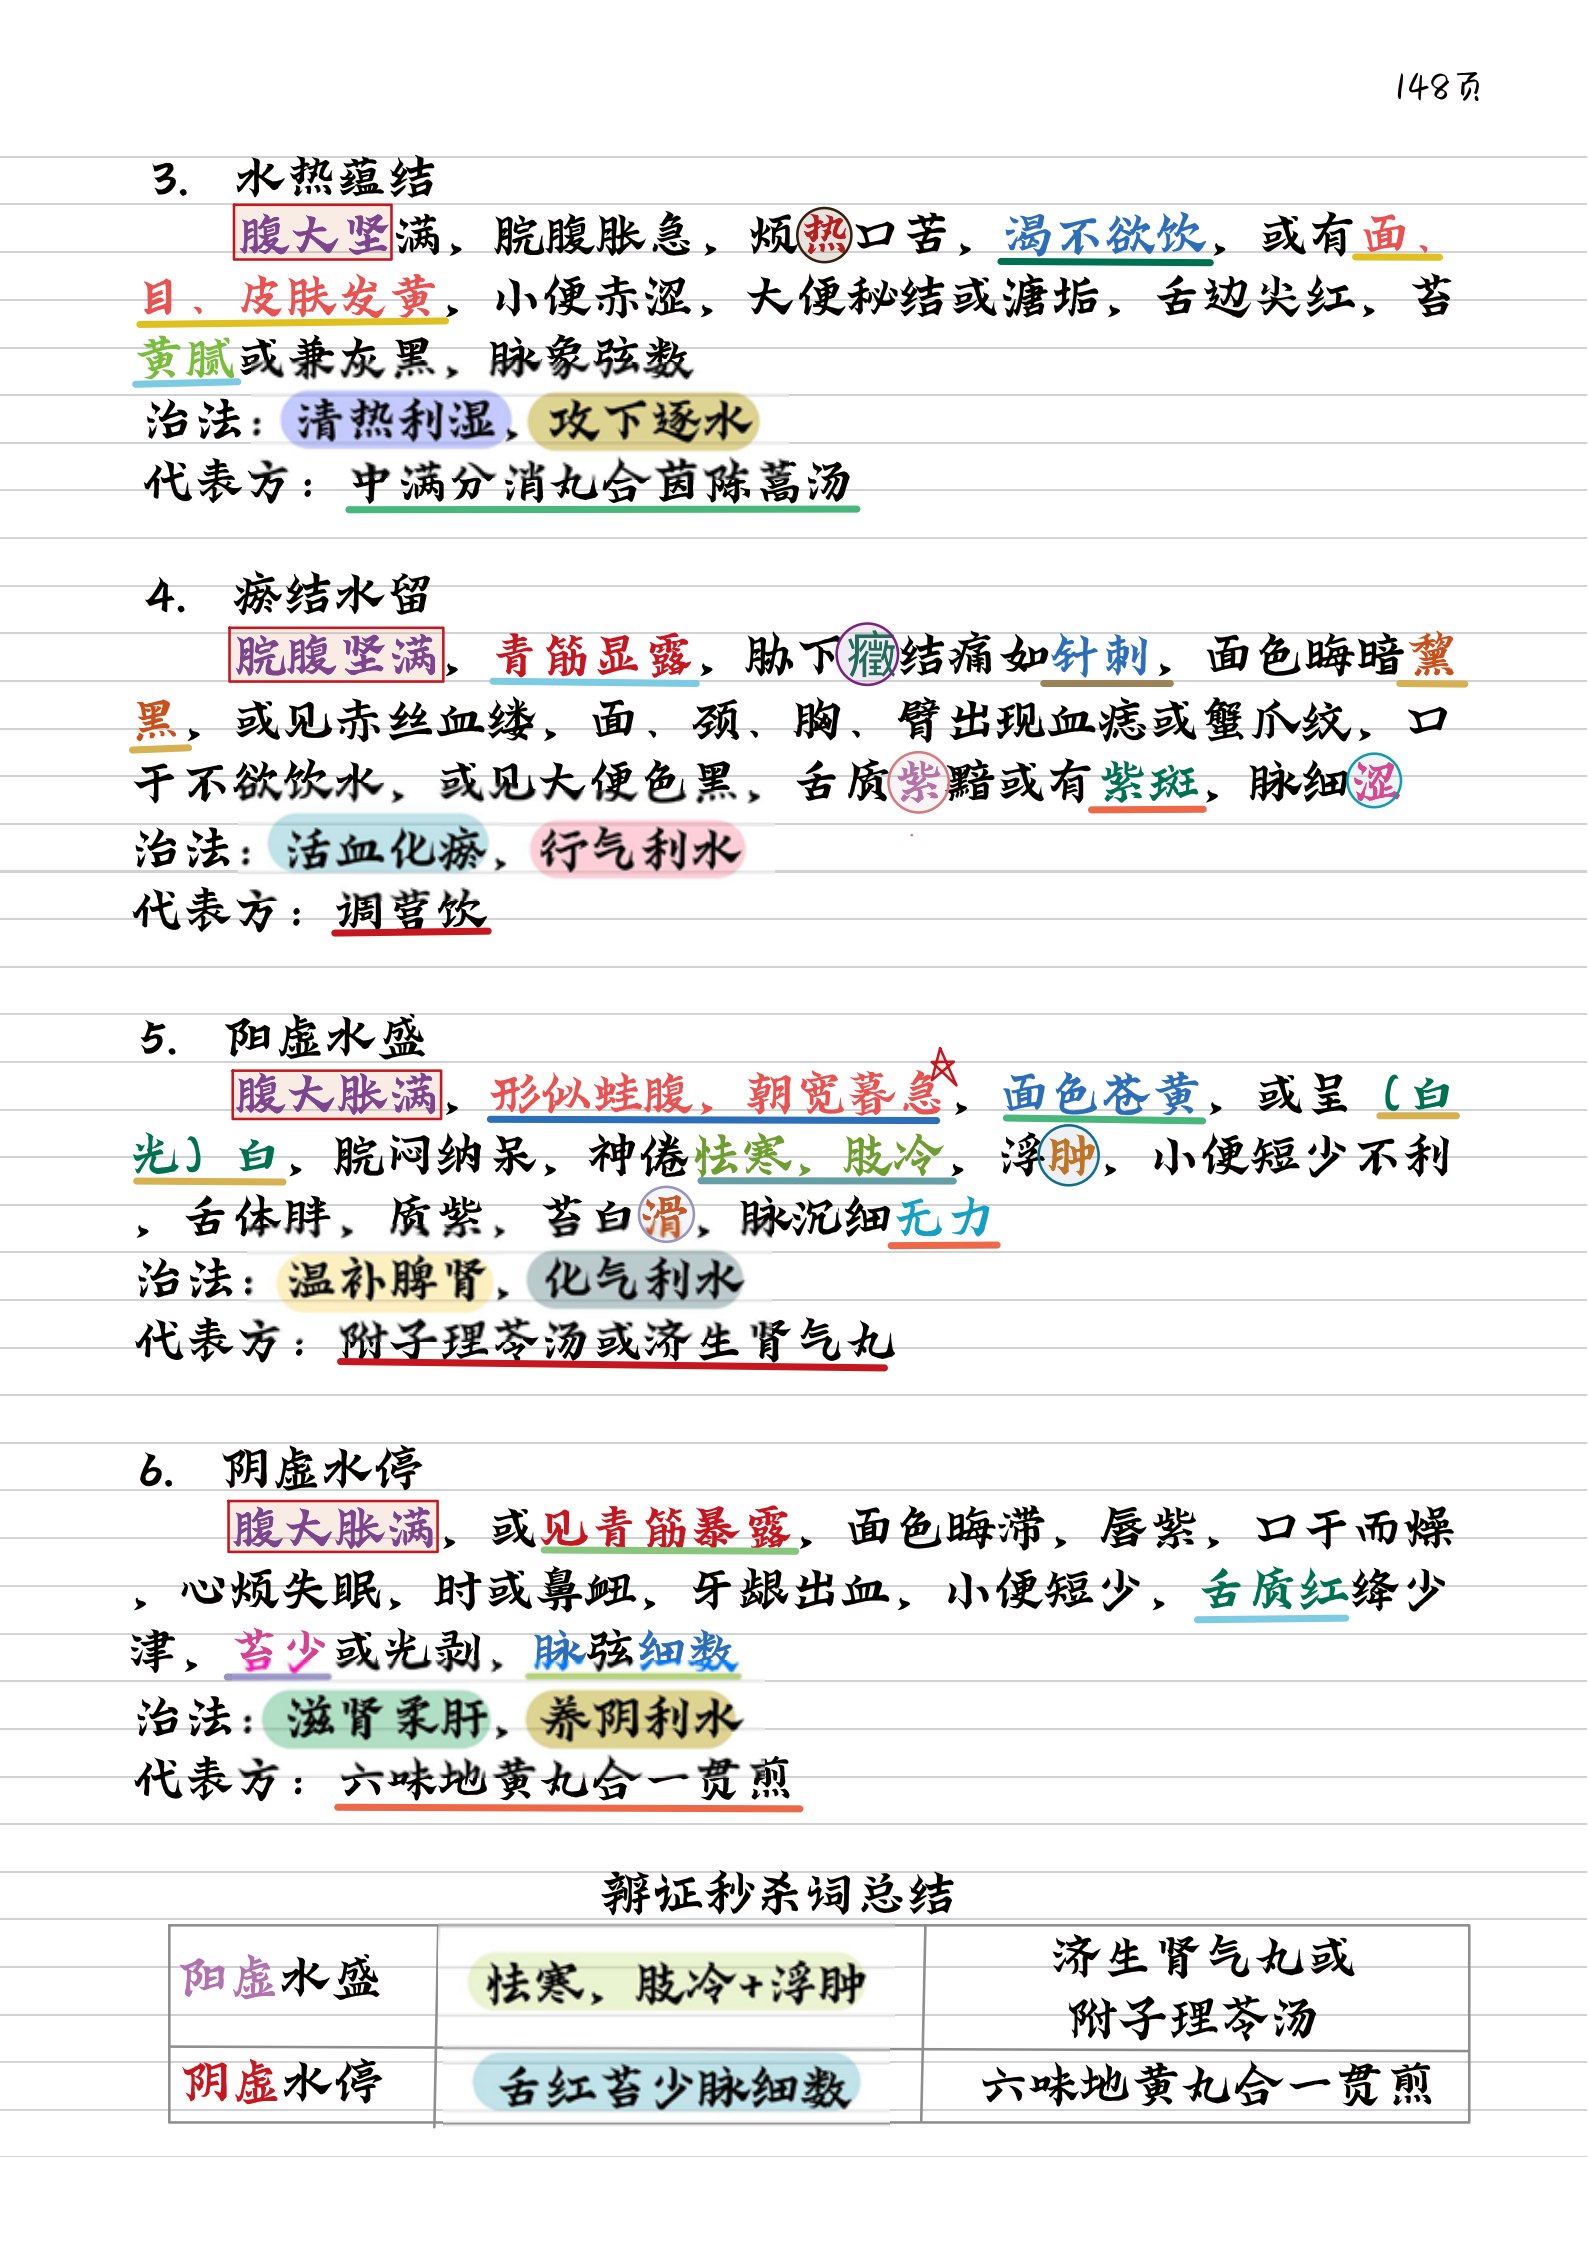 148页
3. 水热蕴结
腹大坚满，脘腹胀急，烦热口苦，渴不欲饮，或有面、
目、皮肤发黄，小便赤涩，大便秘结或溏垢，舌边尖红，苔
黄腻或兼灰黑，脉象弦数
治法：清热利湿，攻下逐水
代表方：中满分消丸合茵陈蒿汤
4. 瘀结水留
脘腹坚满，青筋显露，胁下癥结痛如针刺，面色晦暗黧
黑，或见赤丝血缕，面、颈、胸、臂出现血痣或蟹爪纹，口
干不欲饮水，或见大便色黑，舌质紫黯或有紫斑，脉细涩
治法：活血化瘀，行气利水
代表方：调营饮
5. 阳虚水盛
腹大胀满，形似蛙腹，朝宽暮急，面色苍黄，或呈（白
光）白，脘闷纳呆，神倦怯寒，肢冷，浮肿，小便短少不利
，舌体胖，质紫，苔白滑，脉沉细无力
治法：温补脾肾，化气利水
代表方：附子理苓汤或济生肾气丸
6. 阴虚水停
腹大胀满，或见青筋暴露，面色晦滞，唇紫，口干而燥
，心烦失眠，时或鼻衄，牙龈出血，小便短少，舌质红绛少
津，苔少或光剥，脉弦细数
治法：滋肾柔肝，养阴利水
代表方：六味地黄丸合一贯煎
辨证秒杀词总结
阳虚水盛 怯寒，肢冷+浮肿 济生肾气丸或
附子理苓汤
阴虚水停 舌红苔少脉细数 六味地黄丸合一贯煎